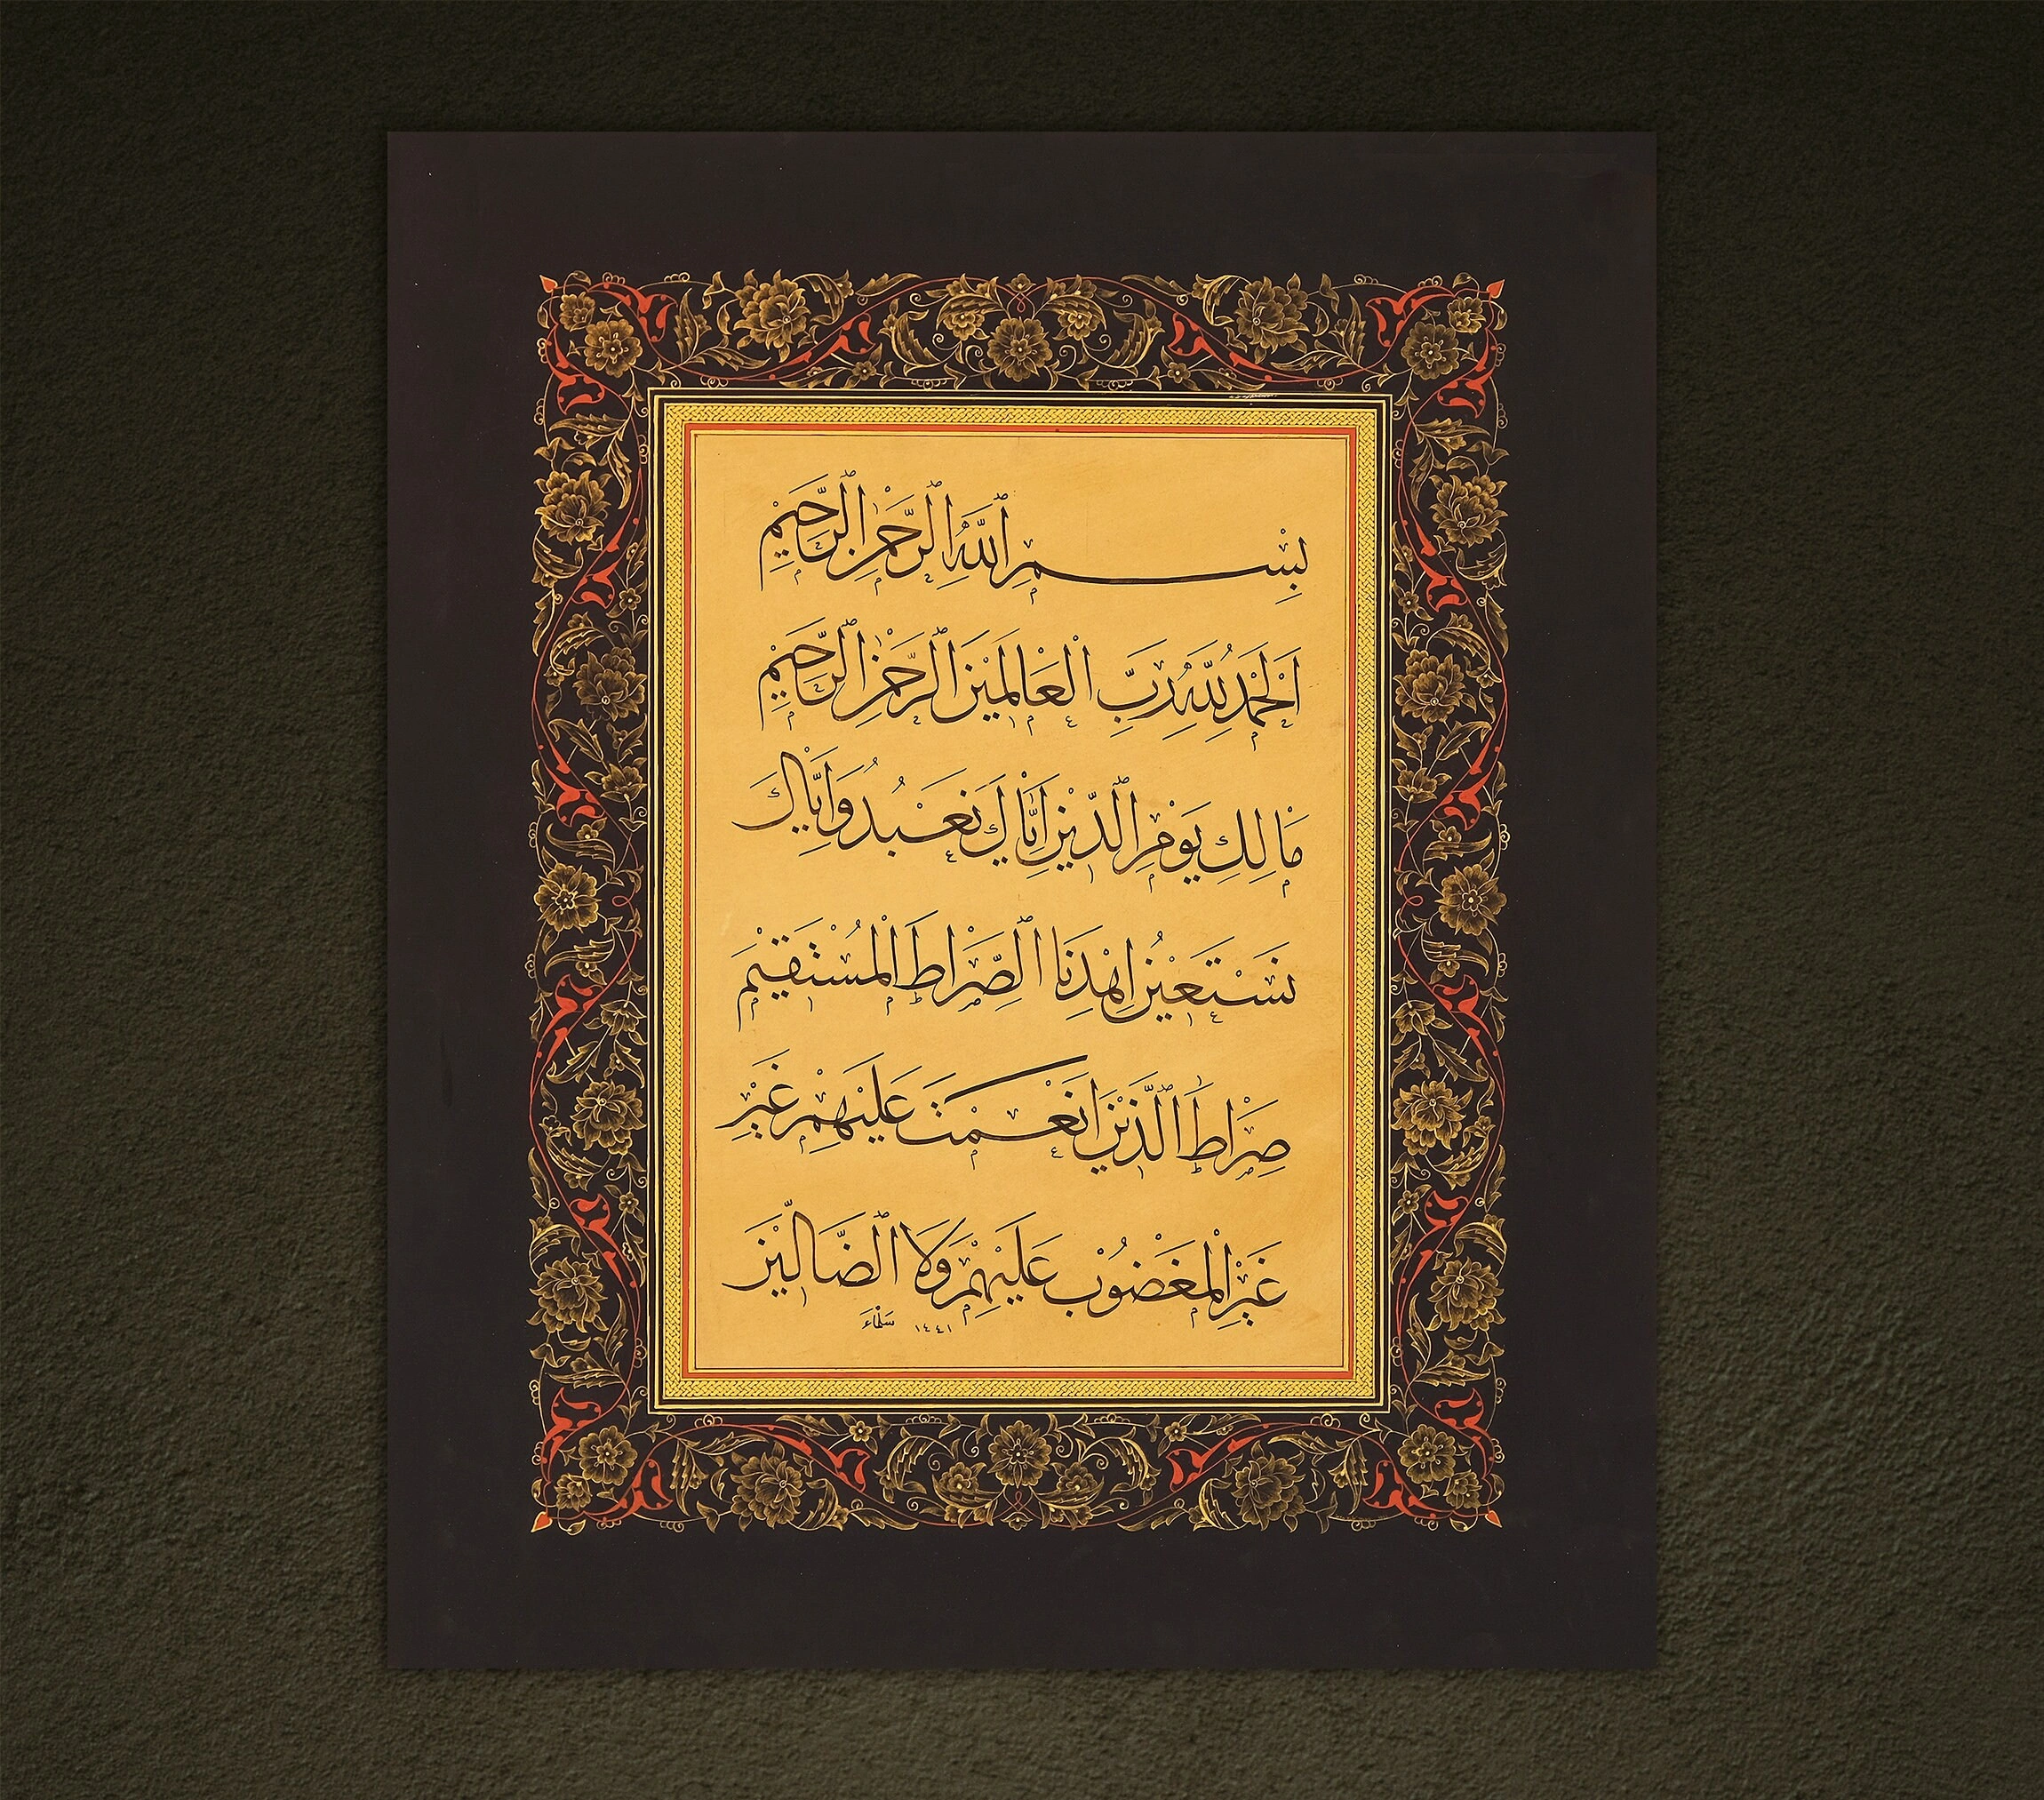 بِسْمِ اللّٰهِ الرَّحْمٰنِ الرَّحِيْمِ
اَلْحَمْدُ لِلّٰهِ رَبِّ الْعَالَمِيْنَ الرَّحْمٰنِ الرَّحِيْمِ
مَالِكِ يَوْمِ الدِّيْنِ اِيَّاكَ نَعْبُدُ وَاِيَّاكَ
نَسْتَعِيْنُ اِهْدِنَا الصِّرَاطَ الْمُسْتَقِيْمَ
صِرَاطَ الَّذِيْنَ اَنْعَمْتَ عَلَيْهِمْ غَيْرِ
غَيْرِ الْمَغْضُوْبِ عَلَيْهِمْ وَلَا الضَّالِّيْنَ
١٤٤١ سَلْمَاء